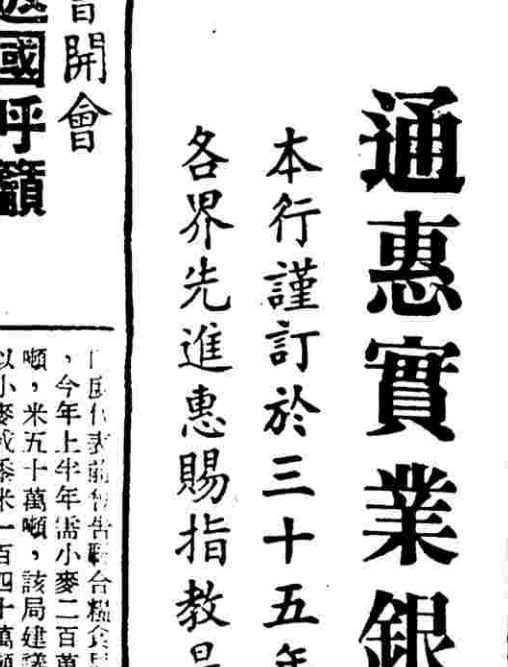 通惠實業銀
本行謹訂於三十五年
各界先進惠賜指教是
開會
國呼籲
，今年上半年需小麥二百萬
噸，米五十萬噸，該局建議
以小麥或黍米一百四十萬噸